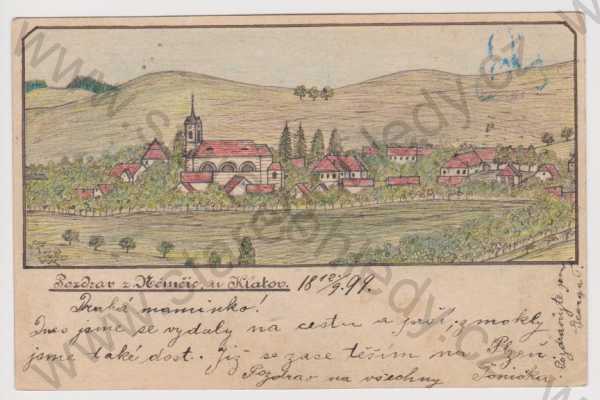 Pozdrav z Němčic u Klatov. 18 12/9. 99.
Drahá maminko!
Dnes jsme se vydaly na cestu a prší, zmokly
jsme také dost. Již se zase těším na Plzeň
Pozdrav na všechny Tonička.
Pozdravuje
www.stare-pohledy.cz